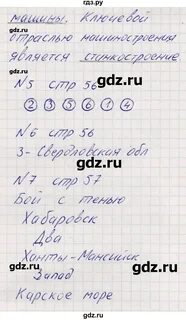 гдз.ру
машины. Ключевой
отраслью машиностроения
является станкостроение
№5 стр 56
2 3 5 6 1 4
№6 стр 56
3- Свердловская обл
№7 стр 57
Бой с тенью
Хабаровск
Два
Ханты-Мансийск
Запад
Карское море